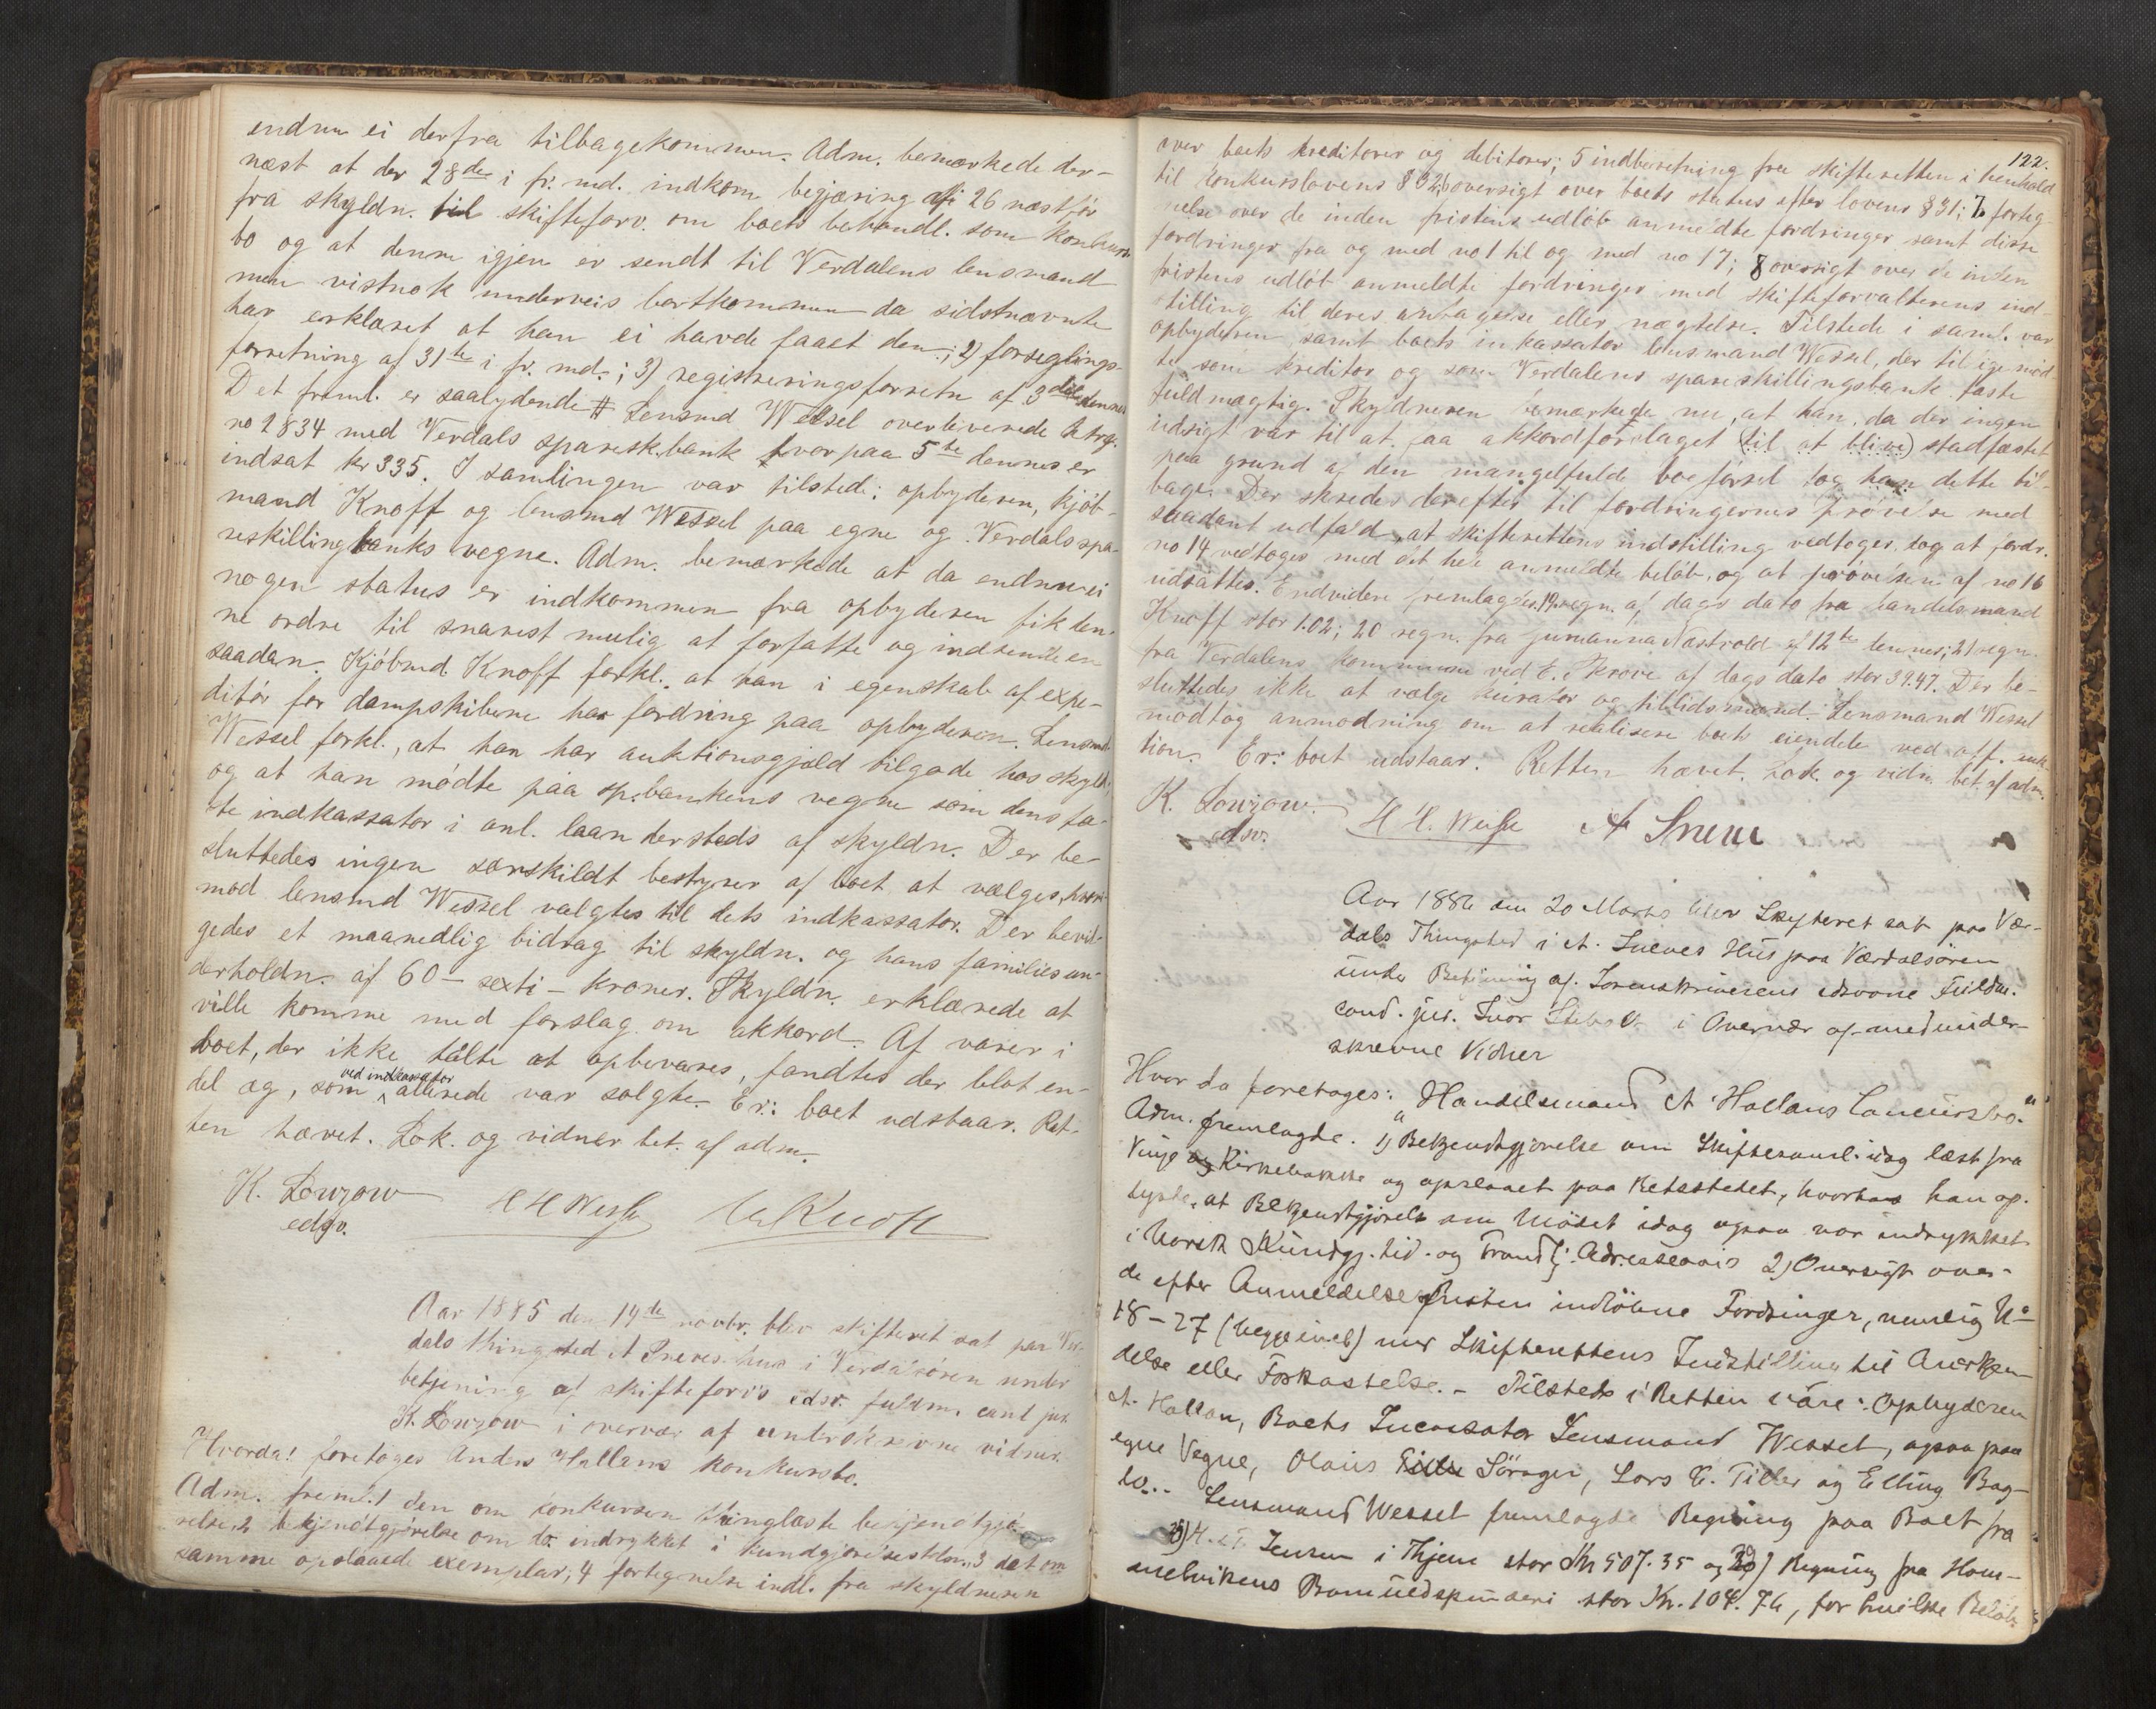 endnu ei derfra tilbagekommen. Adm. bemærkede der-
næst at der 28de i fr. md. indkom begjæring af 26 næstfør
fra skyldn. til skifteforv. om boets behandl. som konkurs-
bo og at denne igjen er sendt til Verdalens lensmand
men vistnok underveis bortkommen da sidstnævnte
har erklæret at han ei havde faaet den; 2) forseglings-
forretning af 31te i fr. md.; 3) registreringsforretn af 3die dennes
Det freml. er saalydende # Lensmd Wessel overleverede ktrg.
no 2834 med Verdals sparesk.bank hvorpaa 5te dennes er
indsat kr 335. I samlingen var tilstede: opbyderen, kjøb-
mand Knoff og lensmd Wessel paa egne og Verdals spa-
reskillingbanks vegne. Adm. bemærkede at da endnu ei
nogen status er indkommen fra opbyderen fik den-
ne ordre til snarest mulig at forfatte og indsende en
saadan. Kjøbmd Knoff forkl. at han i egenskab af expe-
ditør for dampskibene har fordring paa opbyderen. Lensmd.
Wessel forkl., at han har auktionsgjæld tilgode hos skyldn.
og at han mødte paa sp.bankens vegne som dens fa-
ste indkassator i anl. laan dersteds af skyldn. Der be-
sluttedes ingen særskildt bestyrer af boet at vælges, hvori-
mod lensmd Wessel valgtes til dets indkassator. Der bevil-
gedes et maanedlig bidrag til skyldn. og hans families un-
derholdn. af 60 – sexti – kroner. Skyldn. erklærede at
ville komme med forslag om akkord. Af varer i
boet, der ikke tålte at opbevares, fandtes der blot en-
del æg, som ved indkassator allerede var solgte. Er: boet udstaar. Ret-
ten hævet. Lok. og vidner bet. af adm.
K. Lowzow
edsv.
HHWessel
Knoff
Aar 1885 den 14te novbr. blev skifteret sat paa Ver-
dals thingsted A Sneves hus i Verdalsøren under
betjening af skifteforv's edsv. fuldm. cand jur.
K. Lowzow i overvær af underskrevne vidner.
Hvorda! foretoges Anders Hallans konkursbo.
Adm. freml. 1 den om konkursen thinglæste bekjendtgjø-
relse, 2 bekjendtgjørelse om do. indrykket i kundgjørelsestid., 3 det om
samme opslaaede exemplar; 4 fortegnelse indl. fra skyldneren
122.
over boets kreditorer og debitorer; 5 indberetning fra skifteretten i henhold
til konkurslovens § 32; 6 oversigt over boets status efter lovens § 31; 7 forteg-
nelse over de inden fristens udløb anmeldte fordringer samt disse
fordringer fra og med no 1 til og med no 17; 8 oversigt over de inden
fristens udløb anmeldte fordringer med skifteforvalterens ind-
stilling til deres antagelse eller nægtelse. Tilstede i saml. var
opbyderen samt boets inkassator lensmand Wessel, der tillige mød-
te som kreditor og som Verdalens spareskillingsbank faste
fuldmægtig. Skyldneren bemærkede nu, at han, da der ingen
udsigt var til at faa akkordforslaget (til at blive) stadfæstet
paa grund af den mangelfulde bogførsel tog han dette til-
bage. Der skredes derefter til fordringernes prøvelse med
saadant udfald, at skifterettens indstilling vedtoges, dog at fordr.
no 14 vedtoges med det hele anmeldte beløb, og at prøvelsen af no 16
udsattes. Endvidere fremlagdes 19 regn. af dags dato fra handelsmand
Knoff stor 1.02; 20 regn. fra Nastvold af 12te dennes; 21 regn.
fra Verdalens kommune ved E. Skrove af dags dato stor 39.47. Der be-
sluttedes ikke at vælge kurator og tillidsmænd. Lensmand Wessel
modtog anmodning om at realisere boets eiendele ved off. auk-
tion. Er: boet udstaar. Retten hævet. Lok. og vidn. bet. af adm.
K. Lowzow
edsv.
HH. Wessel
A Sneve
Aar 1886 den 20 Marts blev Skifteret sat paa Vær-
dals Thingsted i A. Sneves Hus paa Værdalsøren
under Betjening af Sorenskriverens edsvorne Fuldm.
cand. jur. Ivar i Overvær af medunder-
skrevne Vidner
Hvor da foretoges: "Handelsmand A Hallans Concursbo."
Adm. fremlagde. 1) Bekjendtgjørelse om Skiftesaml. idag læst fra
Vinje og Kirkebakke og opslaaet paa Retsstedet, hvorhos han op-
lyste, at Bekjendtgjørels om Mødet idag ogsaa var indrykket
i Norsk Kundgj. tid. og Trondhj. Adresseavis 2) Oversigt over
de efter Anmeldelsesfristen indløbne Fordringer, nemlig No
18 – 27 (begge incl) med Skifterettens Indstilling til Anerkjen-
delse eller Forkastelse. – Tilstede i Retten vare: Opbyderen
A. Hallan, Boets Incassator Lensmand Wessel, ogsaa paa
egne Vegne, Olaus Sørager, Lars E. Tiller og Elling Bag-
lo.. Lensmand Wessel fremlagde Regning paa Boet fra
28) Jensen i Thjem stor Kr 507.35 og 29) Regning fra Hom-
melvikens Bomuldspinderi stor Kr. 104.76, for hvilke Beløb